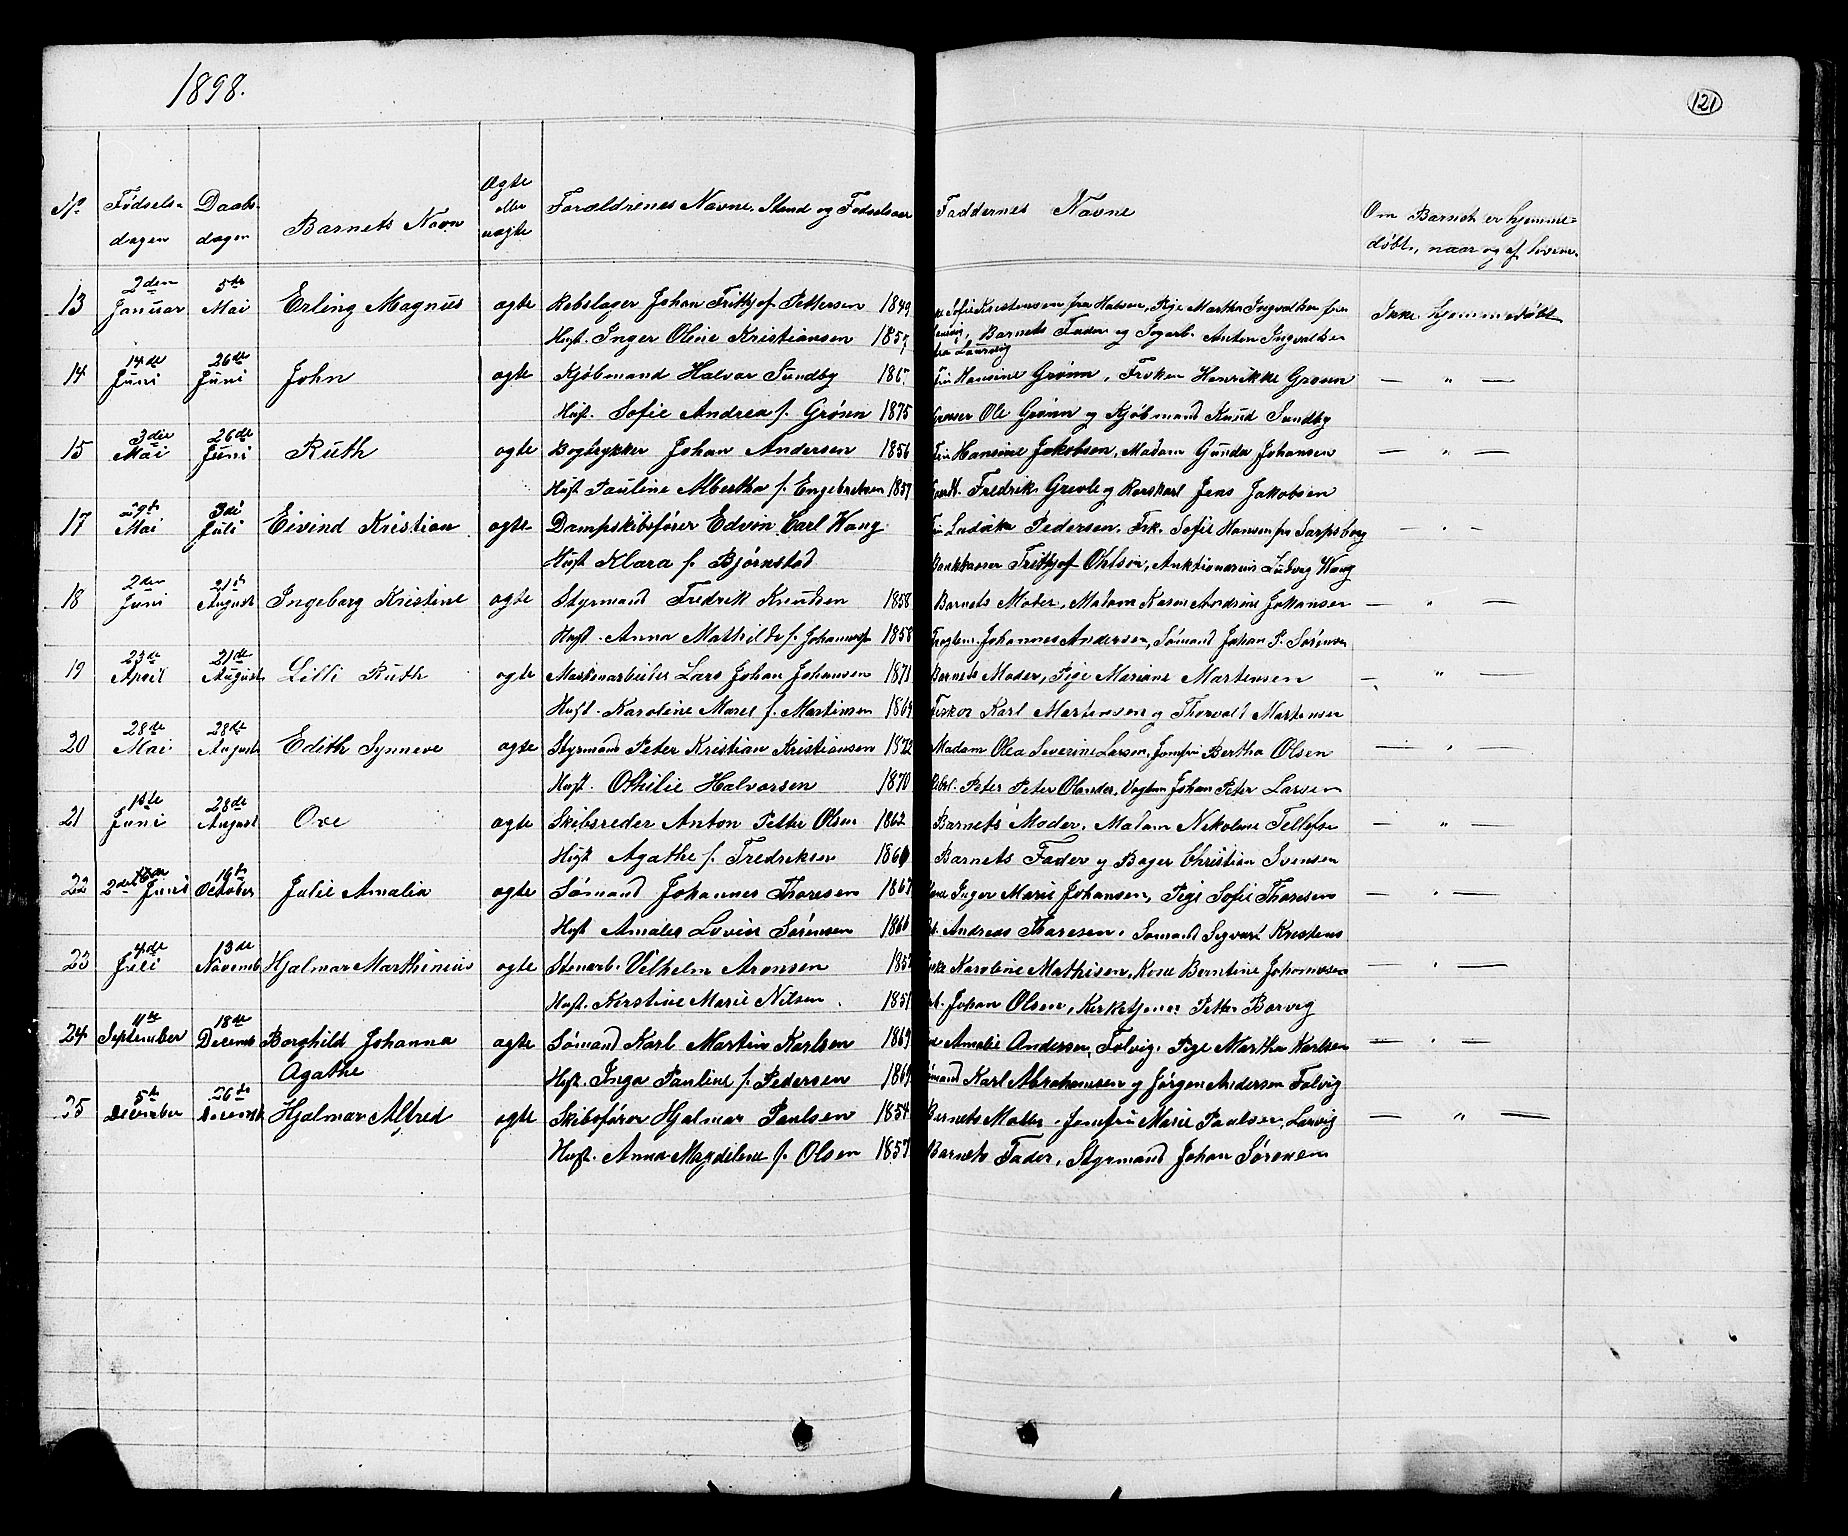 1898.
121
No Fødsels- Daabs- Barnets Navn Ægte Forældrenes Navne, Stand og Fødselsaar Faddernes Navne Om Barnet er hjemme-
dagen dagen eller døbt, naar og af hvem.
uægte
13 2den Januar 5te Mai Erling Magnus ægte Rebslager Johan Frithjof Pettersen 1849 Sofie Kristensen fra Halsen, Pige Martha Ingvaldsen fra
Hust. Inger Oline Kristiansen 1857 Barnets Fader og Anton Ingvaldsen Ikke hjemmedøbt
fra Laurvig
14 14de Juni 26de Juni John ægte Kjøbmand Halvor Sundby Hansine Grønn, Frøken Henrikke Grønn — " —
Hust. Sofie Andrea f. Grønn 1875 Ole Grønn og Kjøbmand Knud Sundby
15 3die Mai 26de Juni Ruth ægte Bogtrykker Johan Andersen 1856 Hansine Jakobsen, Madam Gunda Johansen — " —
Hust Pauline Albertha f. Engebretsen 1857 Fredrik Grevle og Jens Jakobsen
17 29de Mai 3di Juli Eivind Kristian ægte Dampskibsfører Edvin Carl Wang Pedersen, Frk. Sofie Hansen fra Sarpsborg — " —
Hust Klara f. Bjørnstad Bankkasser Frithjof Ohlson, Ludvig Wang
18 2den Juni 21de August Ingeborg Kristine ægte Styrmand Fredrik Knudsen 1858 Barnets Moder, Madam Karen Andrine Johansen — " —
Hust. Anna Mathilde f. Johannesen 1858 Johannes Andersen, Sømand Johan P. Sørensen
19 23de April 21de August Lilli Ruth ægte Maskinarbeider Lars Johan Johansen 1871 Barnets Moder, Pige Mariane Martensen — " —
Hust. Karoline Marie f. Martinsen 1869 Fisker Karl Martensen og Thorvald Martensen
20 28de Mai 28de August Edith Synneve ægte Styrmand Peter Kristian Kristiansen 1872 Madam Olea Severine Larsen, Jomfru Bertha Olsen — " —
Hust. Othilie Halvorsen 1870 Peter Peter Olander, Vagtm Johan Peter Larsen
21 1ste Juni 28de August Ove ægte Skibsreder Anton Petter Olsen 1862 Barnets Moder, Madam Nikoline Tellefsen — " —
Hust Agathe f. Fredriksen Barnets Fader og Bager Christian Svensen
22 Juni October Julie Amalia ægte Sømand Johannes Thoresen 1867 Kone Inger Marie Johansen, Pige Sofie Thoresen — " —
Hust Amalie Lovise Sørensen 1866 Andreas Thoresen, Sømand Sigvart Kristens
23 4de Juli 13de Novemb Hjalmar Marthinius ægte Stenarb. Vilhelm Aronsen Karoline Mathisen, Kone Berntine Johannesen — " —
Hust. Kerstine Marie Nilsen. 1851 Johan Olsen, Kirketjener Petter Borvig
24 4de September 18de Decemb Borghild Johanna ægte Sømand Karl Martin Karlsen 1869 Amalie Andersen, Folvig, Pige Martha Karlsen — " —
Agathe Hust. Inga Pauline f. Pedersen 1869 Sømand Karl Abrahamsen og Jørgen Andersen Folvig
25 5te December 26de Decemb Hjalmar Alfred ægte Skibsfører Hjalmar Paulsen 1854 Barnets Moder, Jomfru Marie Paulsen, Larvig — " —
Hust. Anna Magdelene f. Olsen 1857 Barnets Fader, Styrmand Johan Sørensen